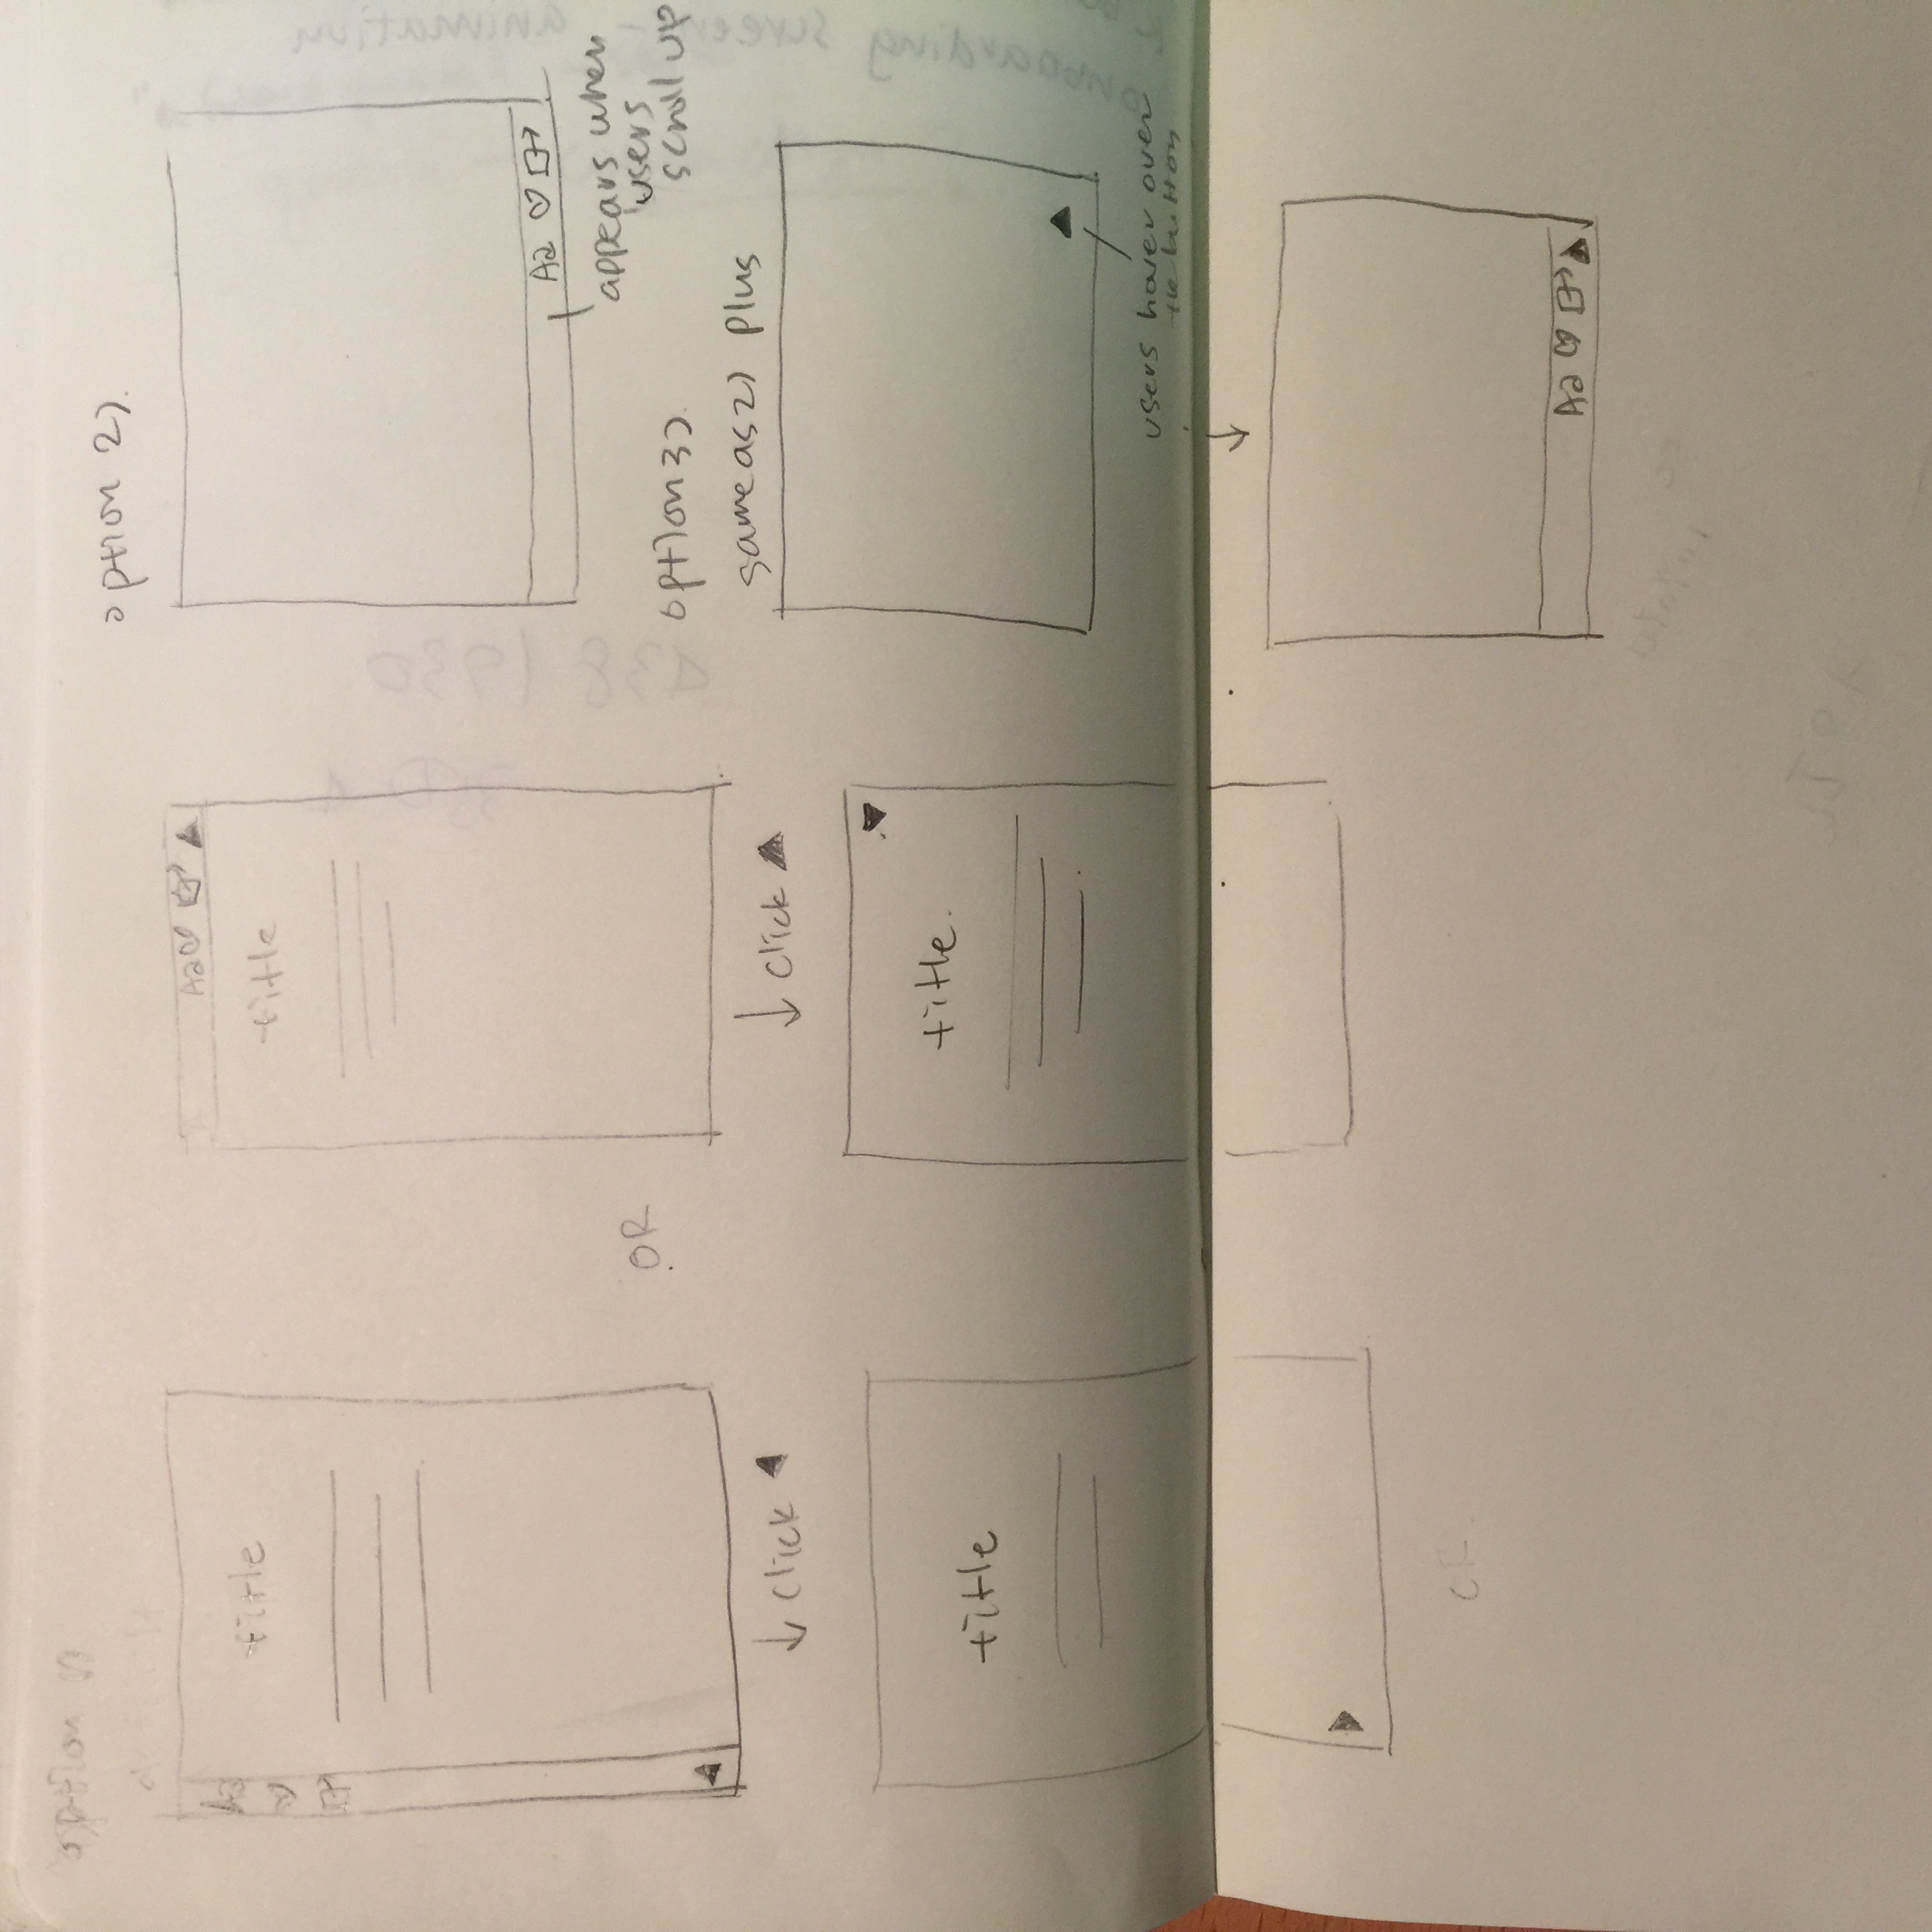 option 1)
default
Aa
title
↓ click ◀
title
OR
OR
Aa
title
↓ click ▲
title.
option 2).
Aa
appears when
users
scroll up
option 3).
same as 2) plus
users hover over
the button
↓
Aa